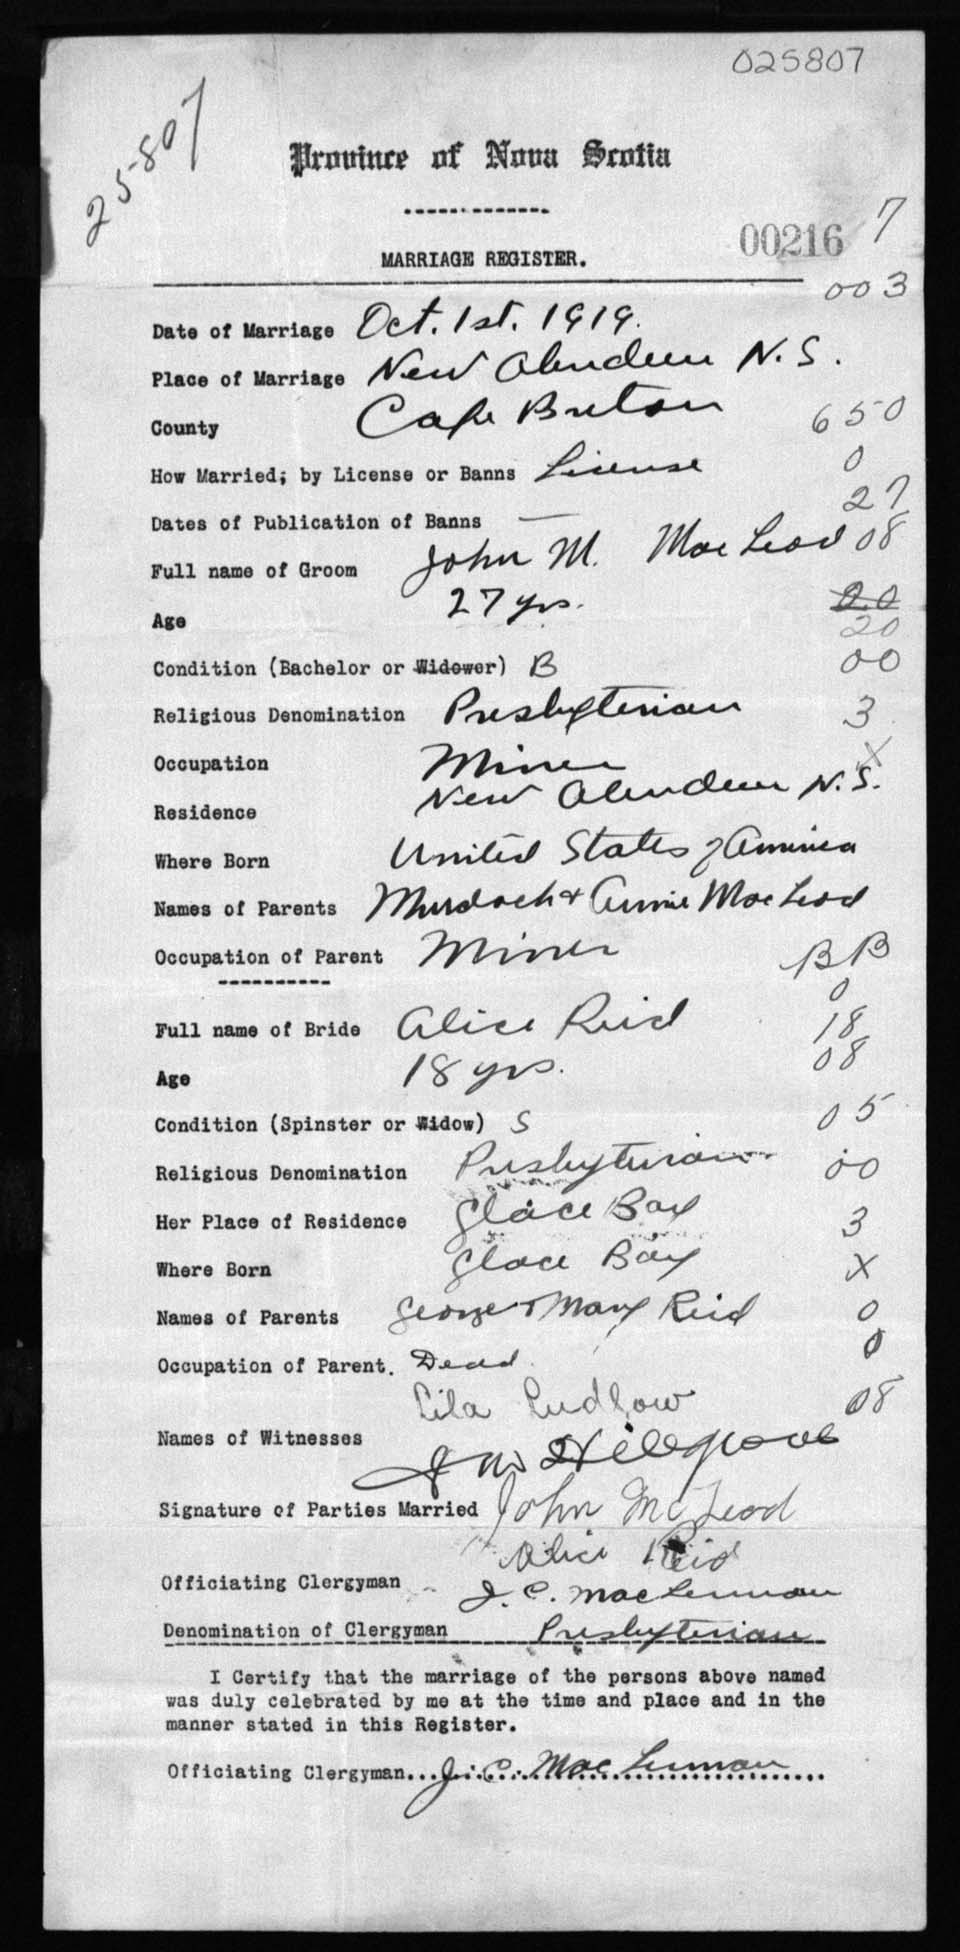 025807
25-807
Province of Nova Scotia
00216 7
MARRIAGE REGISTER.
003
Date of Marriage Oct. 1st. 1919.
Place of Marriage New Aberdeen N.S.
County Cape Breton 650
How Married; by License or Banns License 0
Dates of Publication of Banns — 27
Full name of Groom John M. MacLeod 08
Age 27 yrs. 20
Condition (Bachelor or Widower) B 00
Religious Denomination Presbyterian 3
Occupation Miner X
Residence New Aberdeen N.S.
Where Born United States of America
Names of Parents Murdoch & Annie MacLeod
Occupation of Parent Miner BB
0
Full name of Bride Alice Reid 18
Age 18 yrs. 08
Condition (Spinster or Widow) S 05
Religious Denomination Presbyterian 00
Her Place of Residence Glace Bay 3
Where Born Glace Bay X
Names of Parents George & Mary Reid 0
Occupation of Parent. Dead 0
Lila Ludlow 08
Names of Witnesses
Signature of Parties Married John McLeod
Alice Reid
Officiating Clergyman J. C. MacLennan
Denomination of Clergyman Presbyterian
I Certify that the marriage of the persons above named
was duly celebrated by me at the time and place and in the
manner stated in this Register.
Officiating Clergyman... J. C. MacLennan